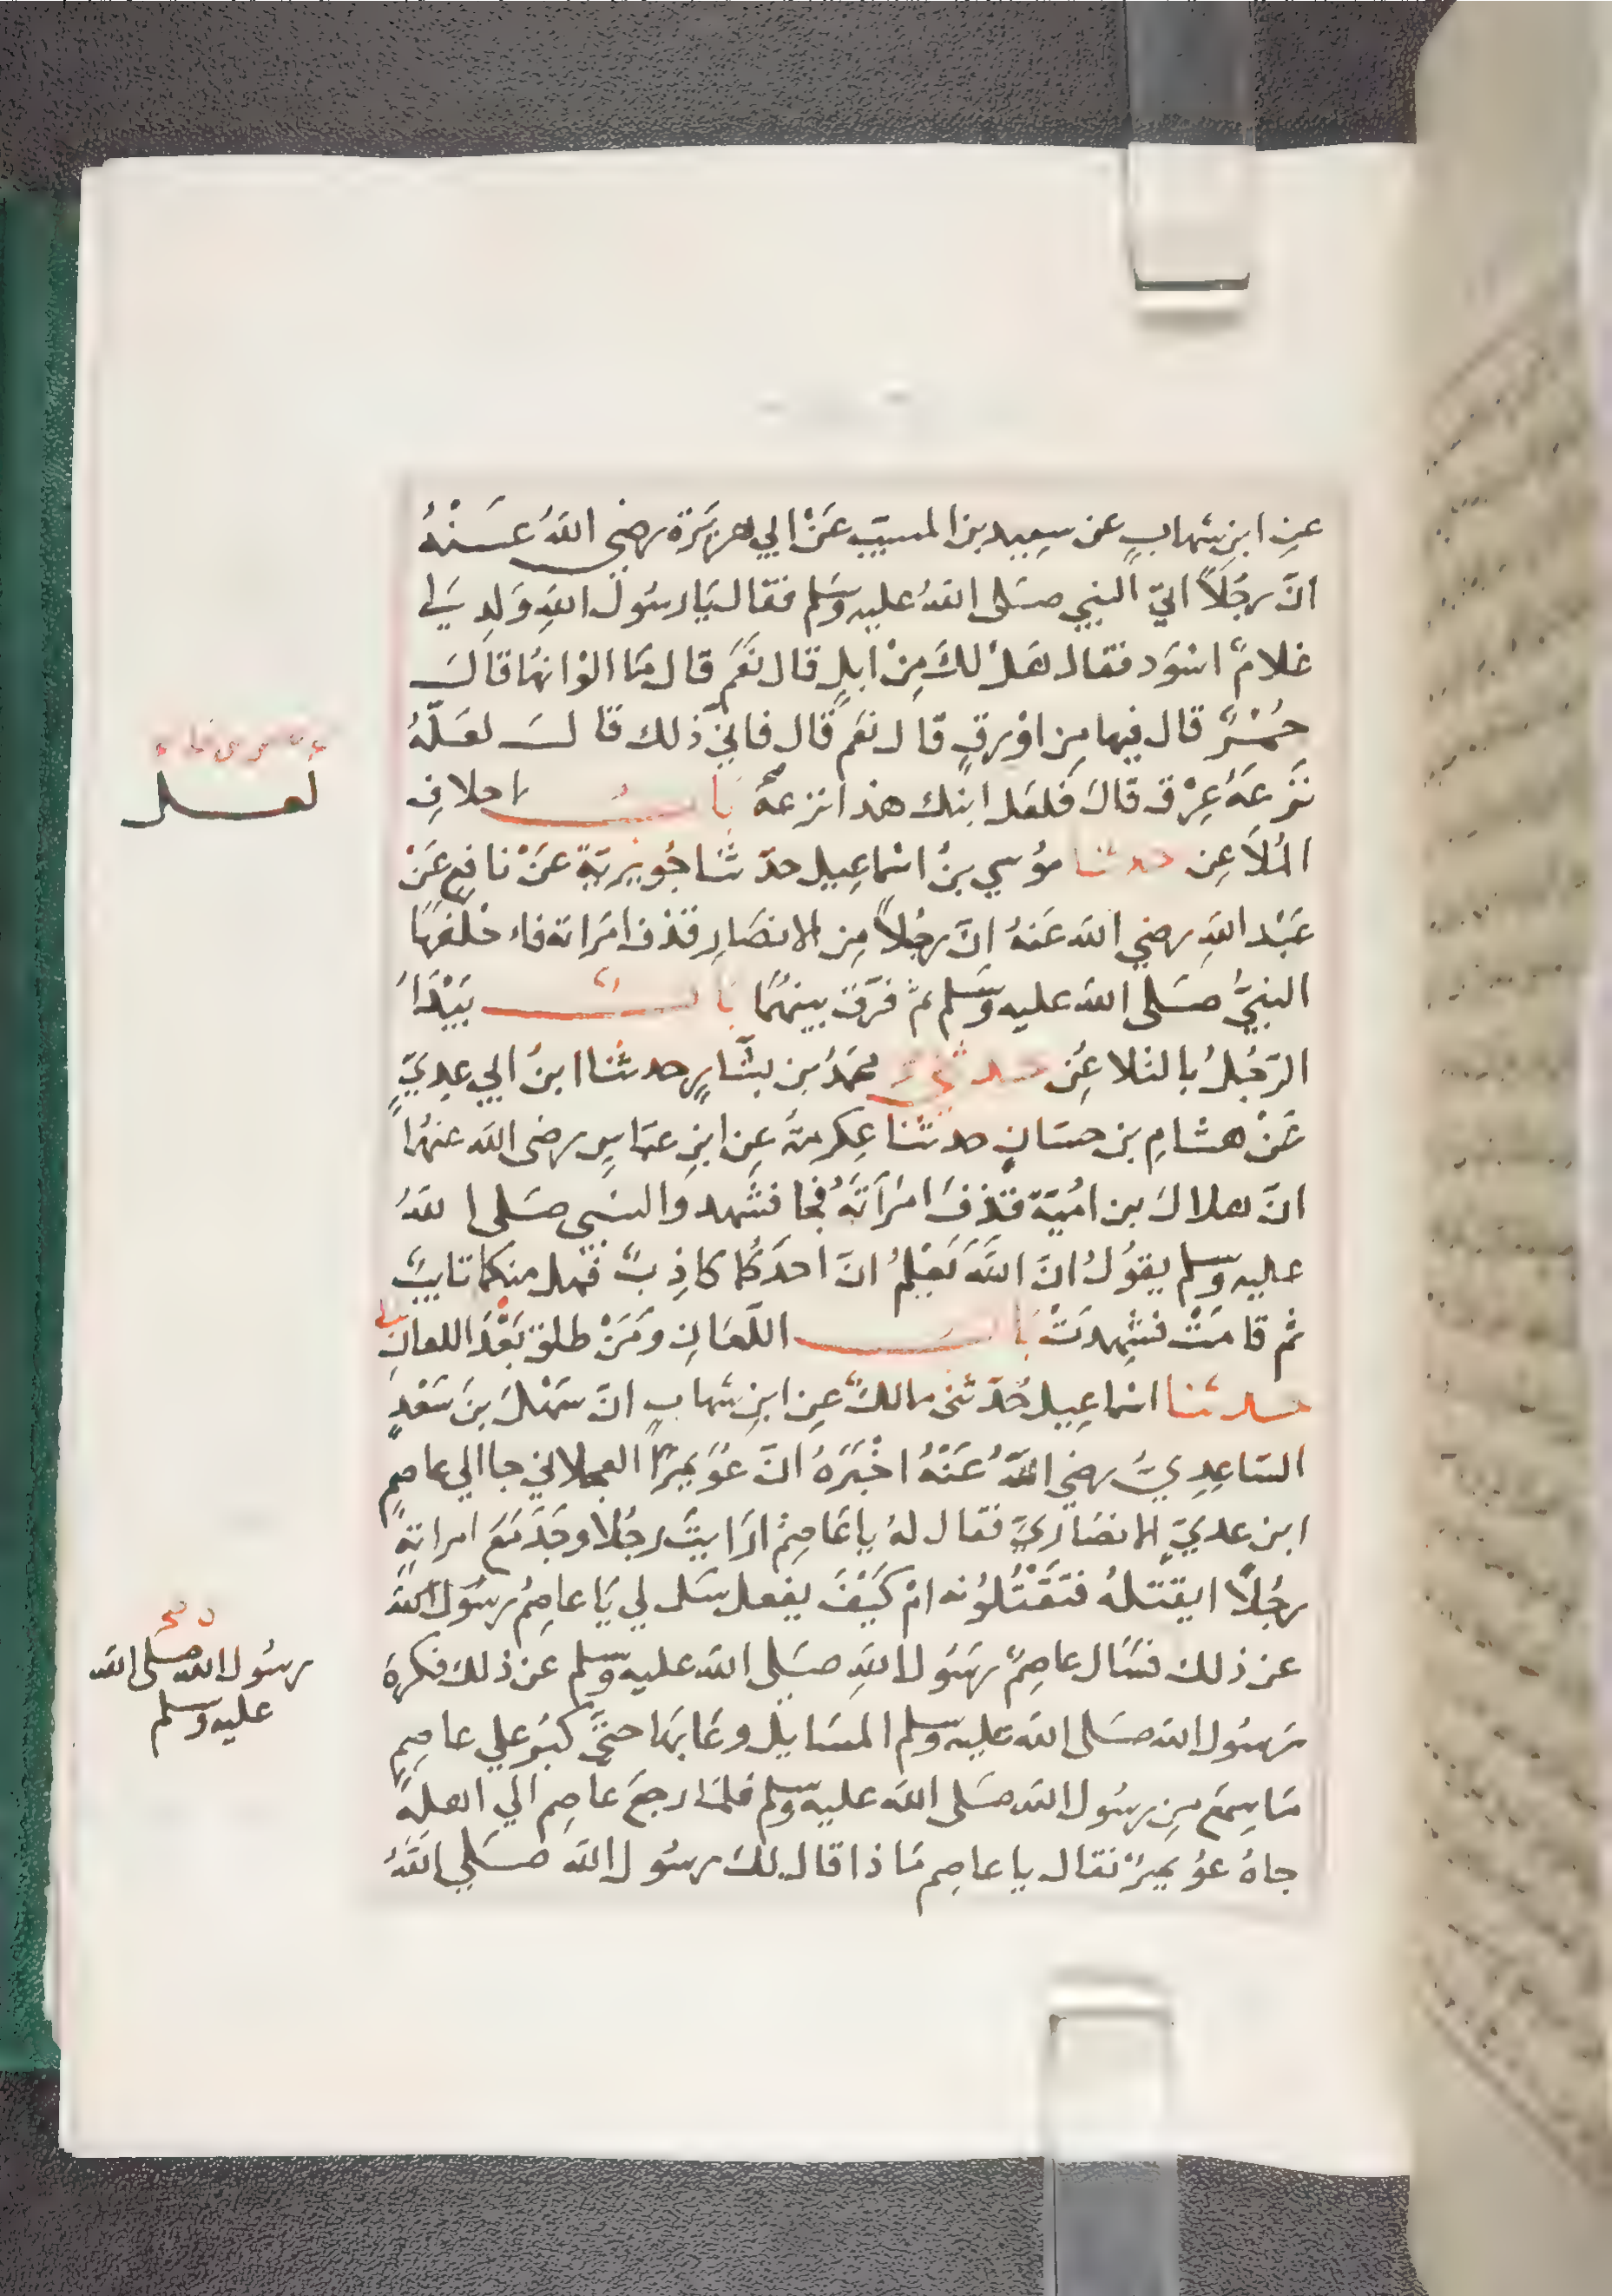 عنِ ابنِ شهابٍ عن سعِيد بن المسيّب عَنْ ابي هريَرة رضي اللهُ عَنْهُ
انَّ رجُلاً اتيَ النبي صَلى اللهُ عليه وسَلم فقال يَا رسُول اللهِ وَلِد لي
غلامٌ اسْوَد فقال هَلْ لكَ مِنْ ابلٍ قال نَعَم قال مَا الوْانهُا قالَ
حُمْرٌ قال فيها مِن اوْرقٍ قال نعَم قال فانيّ ذلك قالَ لعَلّهُ
نزَعَهُ عِرْق قالَ فلعَل ابنك هذا نزعهُ بَابُ احلافِ
المُلاَعِن حدثنا مؤسي بنُ اسْماعِيل حدّثنا جُويريَة عَنْ نافِع عَنْ
عَبْد اللهِ رضي الله عَنهُ انَّ رجُلاً مِن الانصَارِ قذف امَراته فاحْلفَهَا
النبيُّ صَلى الله عليه وسَلم ثم فرّق بينهُمَا بَابُ يَبْدَأُ
الرّجُلُ بالتلاعُنِ حدثني محمّدُ بن بشّارٍ حدثنا ابنُ ابي عدِيَّ
عَنْ هشامِ بن حسَانٍ حدثنا عِكرمةُ عِن ابنِ عبَاسٍ رضى الله عنهُمَا
انّ هلالَ بن امُيّة قذفَ امْرَأتَهُ فجا فشَهد والنبي صَلى اللهُ
عليه وسلم يقوُلُ انّ اللهَ يَعْلمُ انّ احَدَكُما كاذِبٌ فهل منكما تايبٌ
ثم قامَتْ فشِهدَتْ بَابُ اللّعَانِ ومَنْ طلق بَعْدَ اللعانِ
حدثنا اسْماعِيل حُدّثنى مالكٌ عِن ابنِ شهابٍ انّ سَهْلَ بنَ سَعْدٍ
السّاعِدِيُّ رضي اللهُ عَنْهُ اخْبَرَهُ انَّ عوُيمِرًا العجلاني جا الي عاصمٍ
ابن عديٍّ الانصَاريّ فقال لهُ يا عَاصِمُ ارَايتَ رجُلا وجَدَ مَعَ امراتهِ
رجُلاً ايقتلهُ فتَقْتُلوُنه امْ كَيْفَ يفعل سَل لي يَا عاصِمُ رسُول الله
عن ذلك فسَال عاصِمٌ رسَوُل اللهِ صَلى الله عليه وسلم عَن ذلك فكرِهَ
رسُول الله صَلى الله عليه وسلم المسَايل وعَابهَا حتيّ كبُر علي عاصِمٍ
مَا سِمَع مِن رسُول الله صَلى الله عليه وسلم فلمّا رجَع عاصِم الي اهلِهِ
جاهُ عوُيمِرٌ فقال يا عاصِم مَاذا قال لكَ رسُول الله صَلي اللهُ
لعل
رسُول الله صلى الله
عليه وسلم